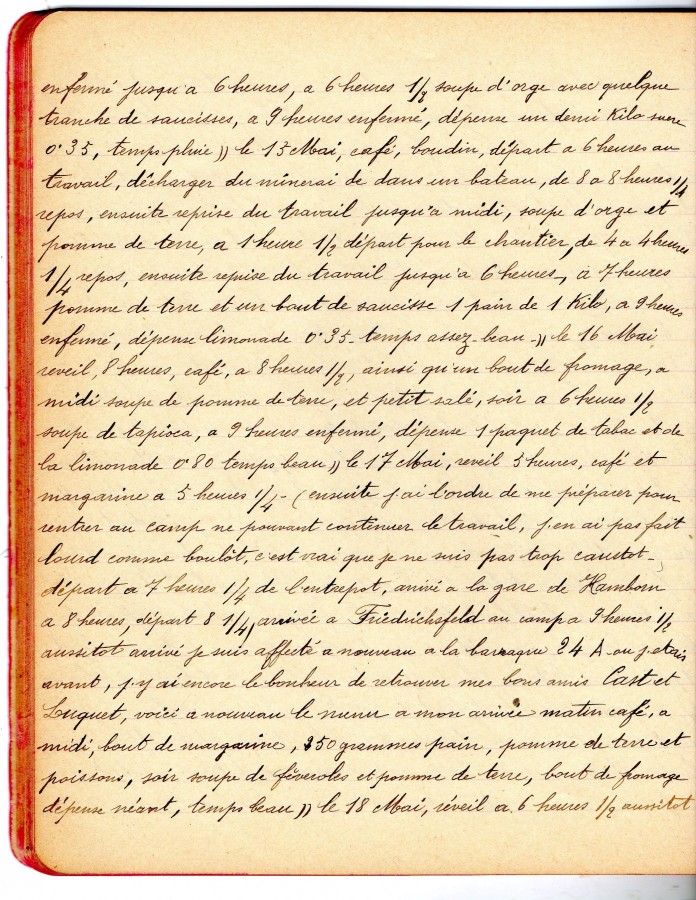 enfermé jusqu'a 6 heures, a 6 heures 1/2 soupe d'orge avec quelque
tranche de saucisses, a 9 heures enfermé, dépense un demi Kilo sucre
0.35, temps pluie )) le 15 Mai, café, boudin, départ a 6 heures au
travail, décharger du minerai de dans un bateau, de 8 a 8 heures 1/4
repos, ensuite reprise du travail jusqu'a midi, soupe d'orge et
pomme de terre, a 1 heure 1/2 départ pour le chantier, de 4 a 4 heures
1/4 repos, ensuite reprise du travail jusqu'a 6 heures, à 7 heures
pomme de terre et un bout de saucisse 1 pain de 1 Kilo, a 9 heures
enfermé, dépense limonade 0.35 - temps assez-beau - )) le 16 Mai
reveil, 8 heures, café, a 8 heures 1/2, ainsi qu'un bout de fromage, a
midi soupe de pomme de terre, et petit salé, soir a 6 heures 1/2
soupe de tapioca, a 9 heures enfermé, dépense 1 paquet de tabac et de
la limonade 0.80 temps beau )) le 17 Mai, reveil 5 heures, café et
margarine a 5 heures 1/4 - (ensuite j'ai l'ordre de me préparer pour
rentrer au camp ne pouvant continuer le travail, j'en ai pas fait
lourd comme boulôt, c'est vrai que je ne suis pas trop
départ a 7 heures 1/4 de l'entrepot, arrivé a la gare de Hamborn
a 8 heures, départ 8 1/4, arrivée a Friedrichsfeld au camp a 9 heures 1/2
aussitot arrivé je suis affecté a nouveau a la barraque 24 A ou j'etais
avant, j'y ai encore le bonheur de retrouver mes bons amis Cast et
Luquet, voici a nouveau le menu a mon arrivée matin café, a
midi, bout de margarine, 350 grammes pain, pomme de terre et
poissons, soir soupe de féveroles et pomme de terre, bout de fromage
dépense néant, temps beau )) le 18 Mai, réveil a 6 heures 1/2 aussitot